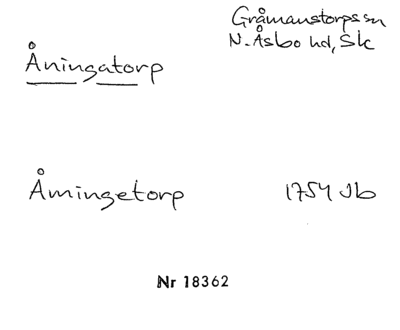 Gråmanstorps sn
N. Åsbo hd, Sk
Åningatorp
Åmingetorp 1754 Jb
Nr 18362